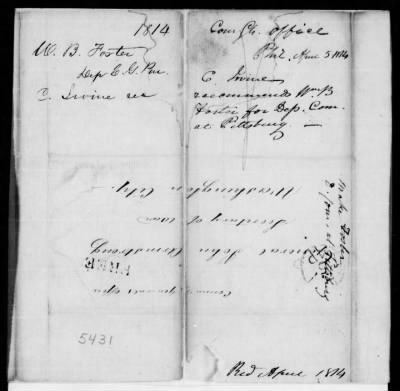 1814
W. B. Foster
Dep C. G. Pur.
C. Irvine rec
Com. Gl. Office
Phil. April 5 1814
C. Irvine
recommends Wm B
Foster for Dep. Com.
at Pittsburg. —
General John Armstrong
Secretary of War
Washington City.
FREE
5431
Recd April 1814